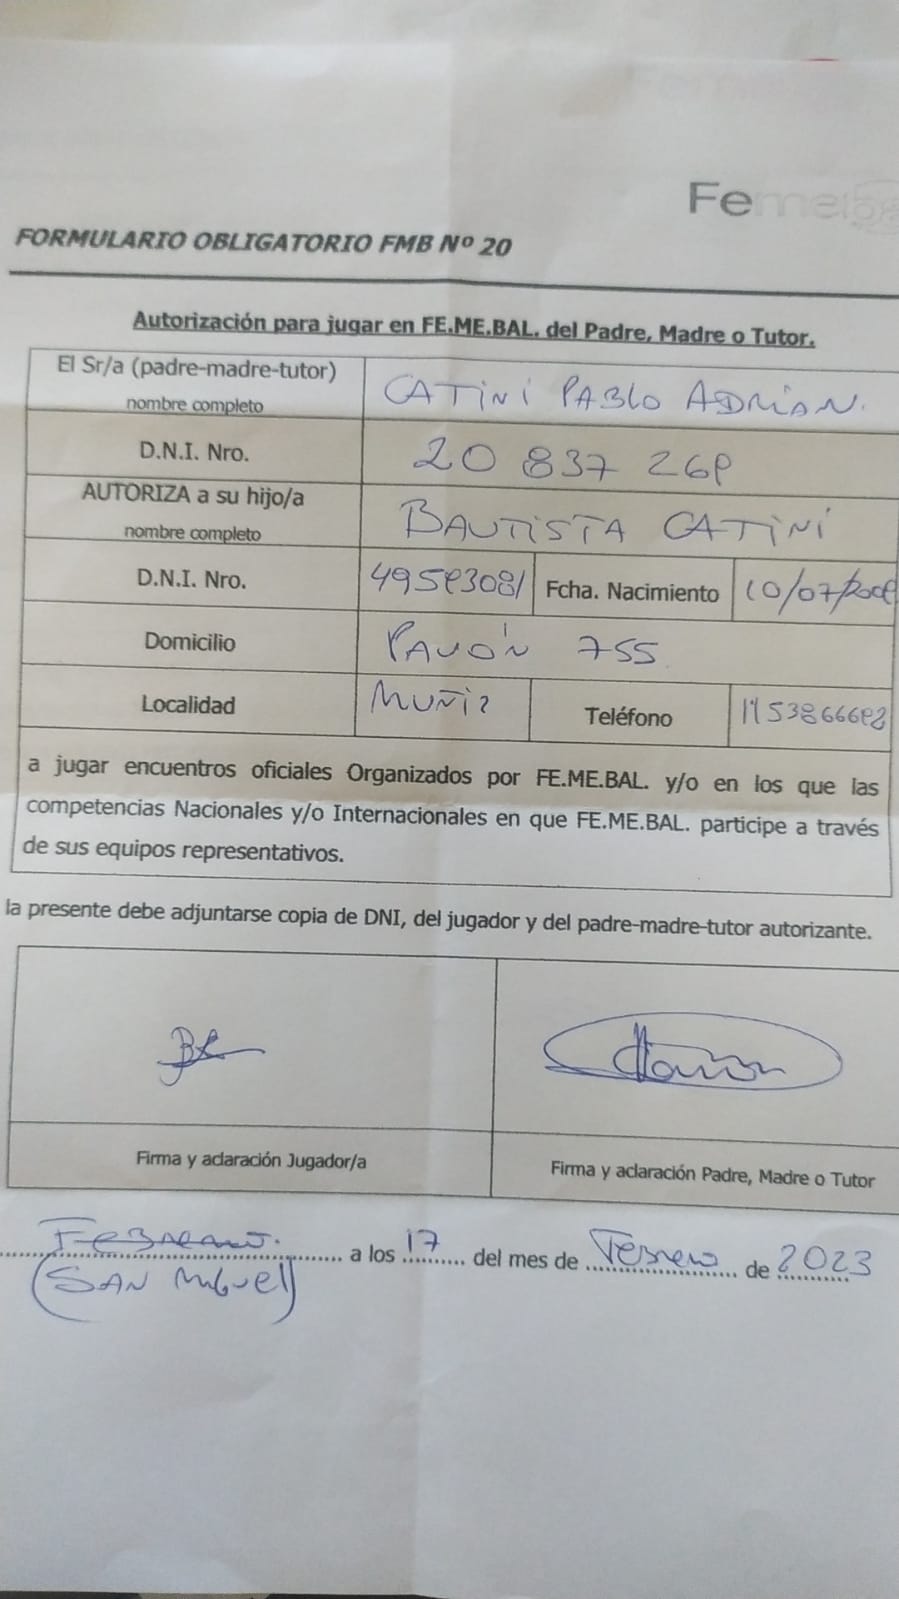 Femebal
FORMULARIO OBLIGATORIO FMB Nº 20
Autorización para jugar en FE.ME.BAL. del Padre, Madre o Tutor.
El Sr/a (padre-madre-tutor) nombre completo CATINI PABLO ADRIAN.
D.N.I. Nro. 20 837
AUTORIZA a su hijo/a nombre completo BAUTISTA CATINI
D.N.I. Nro. Fcha. Nacimiento
Domicilio PAVÓN 755
Localidad MUÑIZ Teléfono
a jugar encuentros oficiales Organizados por FE.ME.BAL. y/o en los que las
competencias Nacionales y/o Internacionales en que FE.ME.BAL. participe a través
de sus equipos representativos.
la presente debe adjuntarse copia de DNI, del jugador y del padre-madre-tutor autorizante.
Firma y aclaración Jugador/a Firma y aclaración Padre, Madre o Tutor
a los 17 del mes de Febrero de 2023
(SAN MIGUEL)